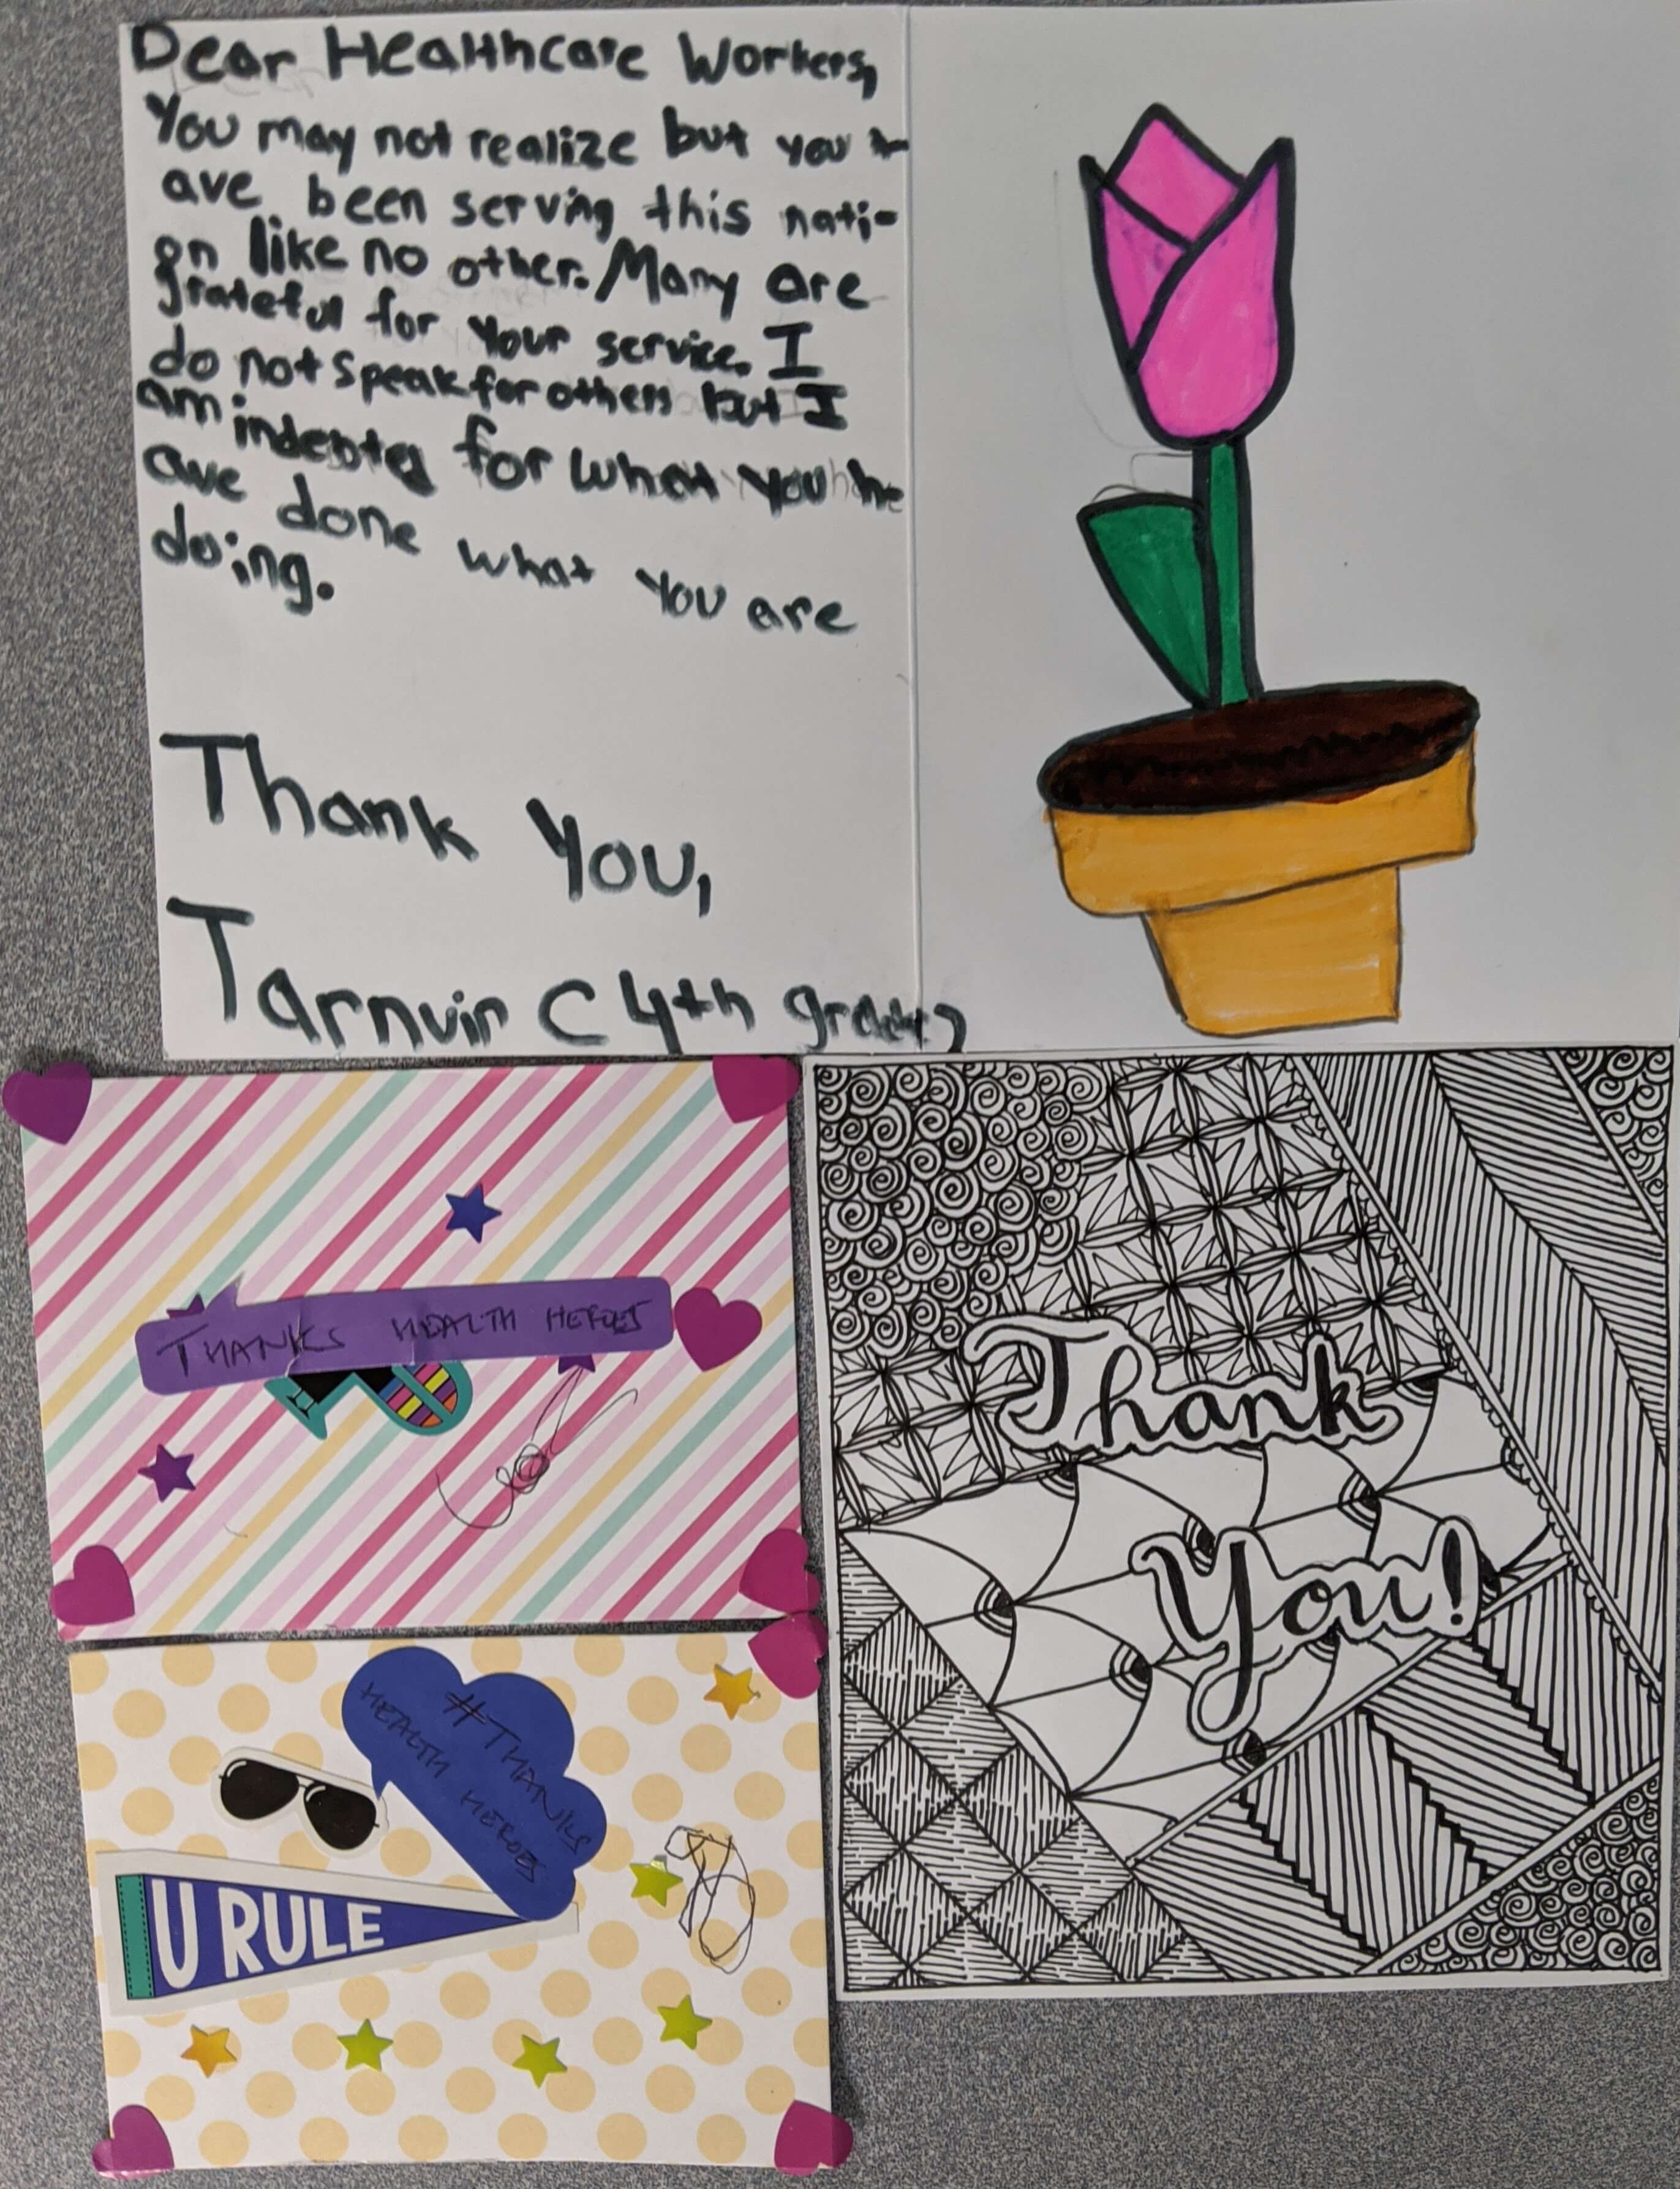 Dear Healthcare Workers,
You may not realize but you h-
ave been serving this nati-
on like no other. Many are
grateful for your service. I
do not speak for others but I
am indebted for what you h
ave done what you are
doing.
Thank You,
Tarnvir C 4th grade
THANKS HEALTH HEROES
Thank
You!
#THANKS
HEALTH HEROES
U RULE